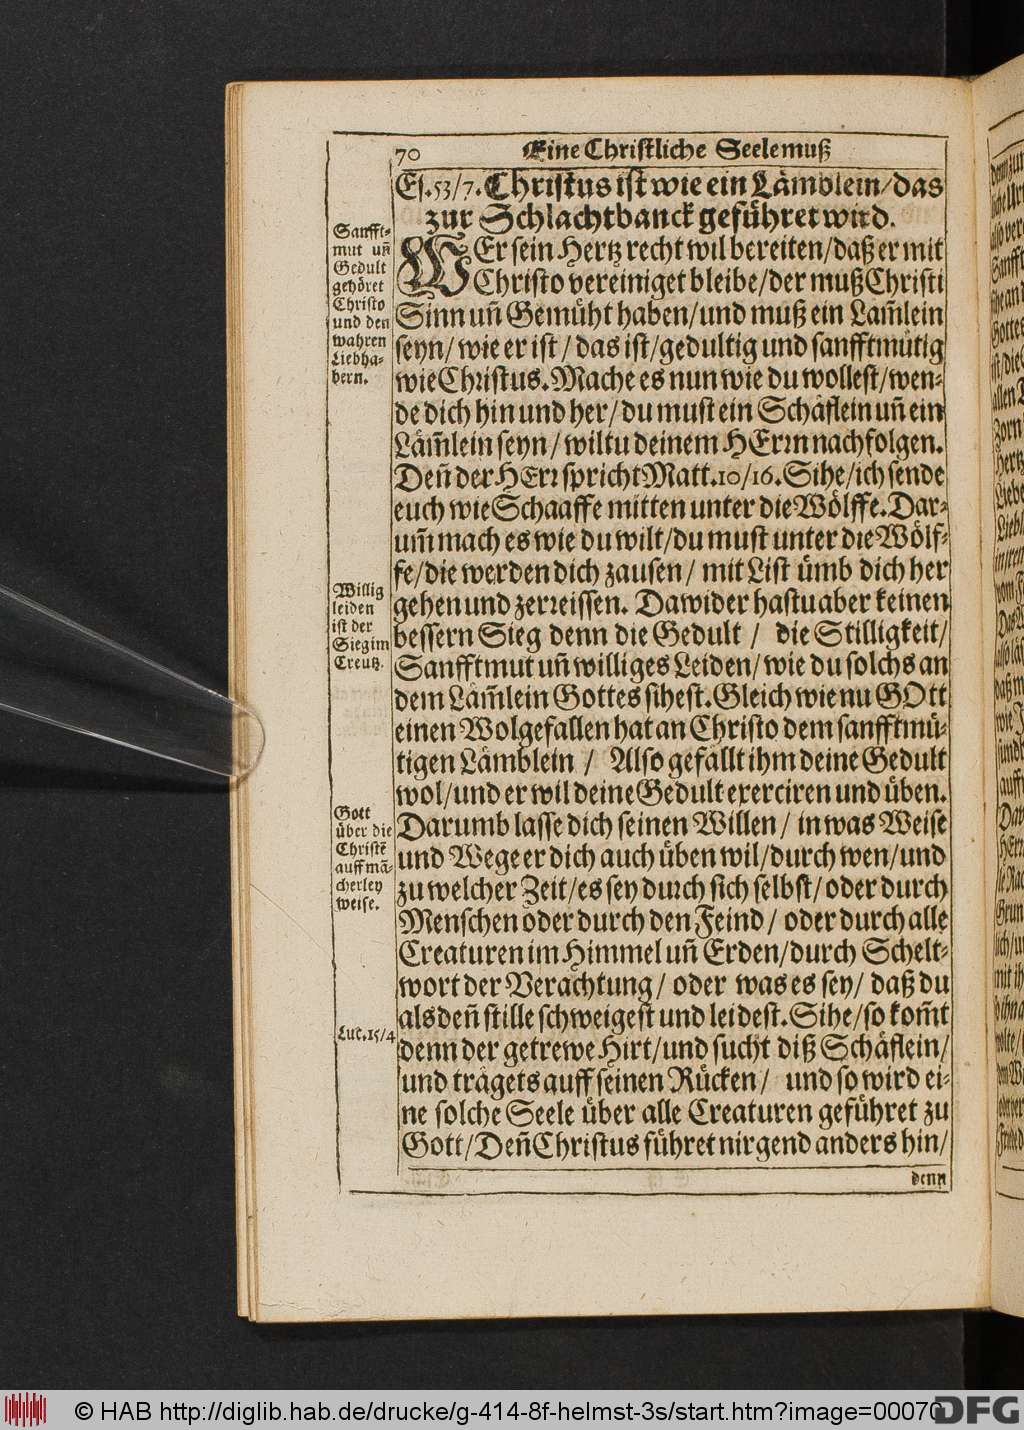 70 Eine Christliche Seele muß
Es. 53/7. Christus ist wie ein Lämblein/das
zur Schlachtbanck geführet wird.
WEr sein Hertz recht wil bereiten/daß er mit
Christo vereiniget bleibe/der muß Christi
Sinn uñ Gemüht haben/und muß ein Lam̃lein
seyn/wie er ist/das ist/gedultig und sanfftmütig
wie Christus. Mache es nun wie du wollest/wen-
de dich hin und her/du must ein Schäflein uñ ein
Läm̃lein seyn/wiltu deinem HErrn nachfolgen.
Deñ der HErr spricht Matt. 10/16. Sihe/ich sende
euch wie Schaaffe mitten unter die Wölffe. Dar-
um̃ mach es wie du wilt/du must unter die Wölf-
fe/die werden dich zausen/mit List ümb dich her
gehen und zerreissen. Dawider hastu aber keinen
bessern Sieg denn die Gedult/die Stilligkeit/
Sanfftmut uñ williges Leiden/wie du solchs an
dem Läm̃lein Gottes sihest. Gleich wie nu GOtt
einen Wolgefallen hat an Christo dem sanfftmü-
tigen Lämblein/Also gefällt ihm deine Gedult
wol/und er wil deine Gedult exerciren und üben.
Darumb lasse dich seinen Willen/in was Weise
und Wege er dich auch üben wil/durch wen/und
zu welcher Zeit/es sey durch sich selbst/oder durch
Menschen oder durch den Feind/oder durch alle
Creaturen im Himmel uñ Erden/durch Schelt-
wort der Verachtung/oder was es sey/daß du
als deñ stille schweigest und leidest. Sihe/so kom̃t
denn der getrewe Hirt/und sucht diß Schäflein/
und trägets auff seinen Rücken/und so wird ei-
ne solche Seele über alle Creaturen geführet zu
Gott/Deñ Christus führet nirgend anders hin/
denn
Sanfft-
mut uñ
Gedult
gehöret
Christo
und den
wahren
Liebha-
bern.
Willig
leiden
ist der
Sieg im
Creutz.
Gott
über die
Christẽ
auff mã-
cherley
weise.
Luc. 15/4
© HAB http://diglib.hab.de/drucke/g-414-8f-helmst-3s/start.htm?image=00070
DFG